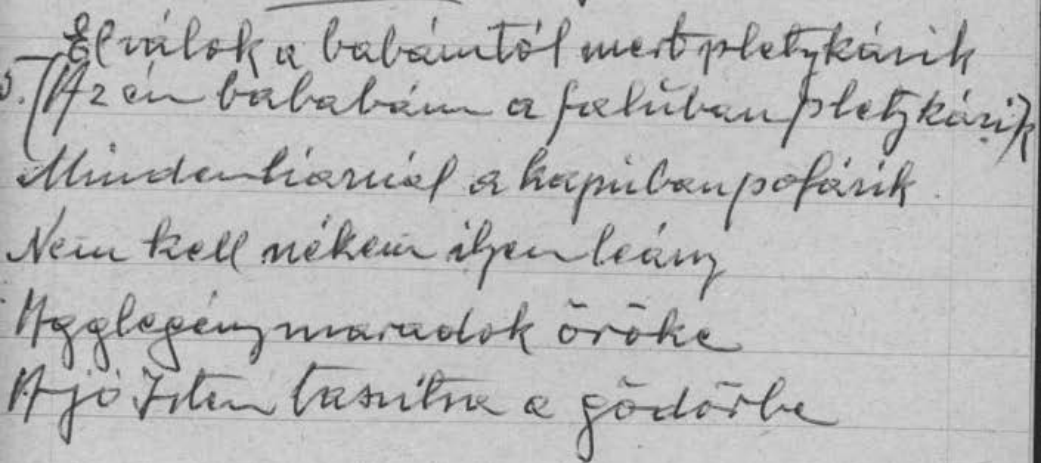 Elválok a babámtól mert pletykásik
5. (Az én bababám a faluban pletykásik)
Minden háznál a kapuban pofásik
Nem kell nékem ilyen leány
Agglegény maradok öröke
A jó Isten taszítsa a gödörbe